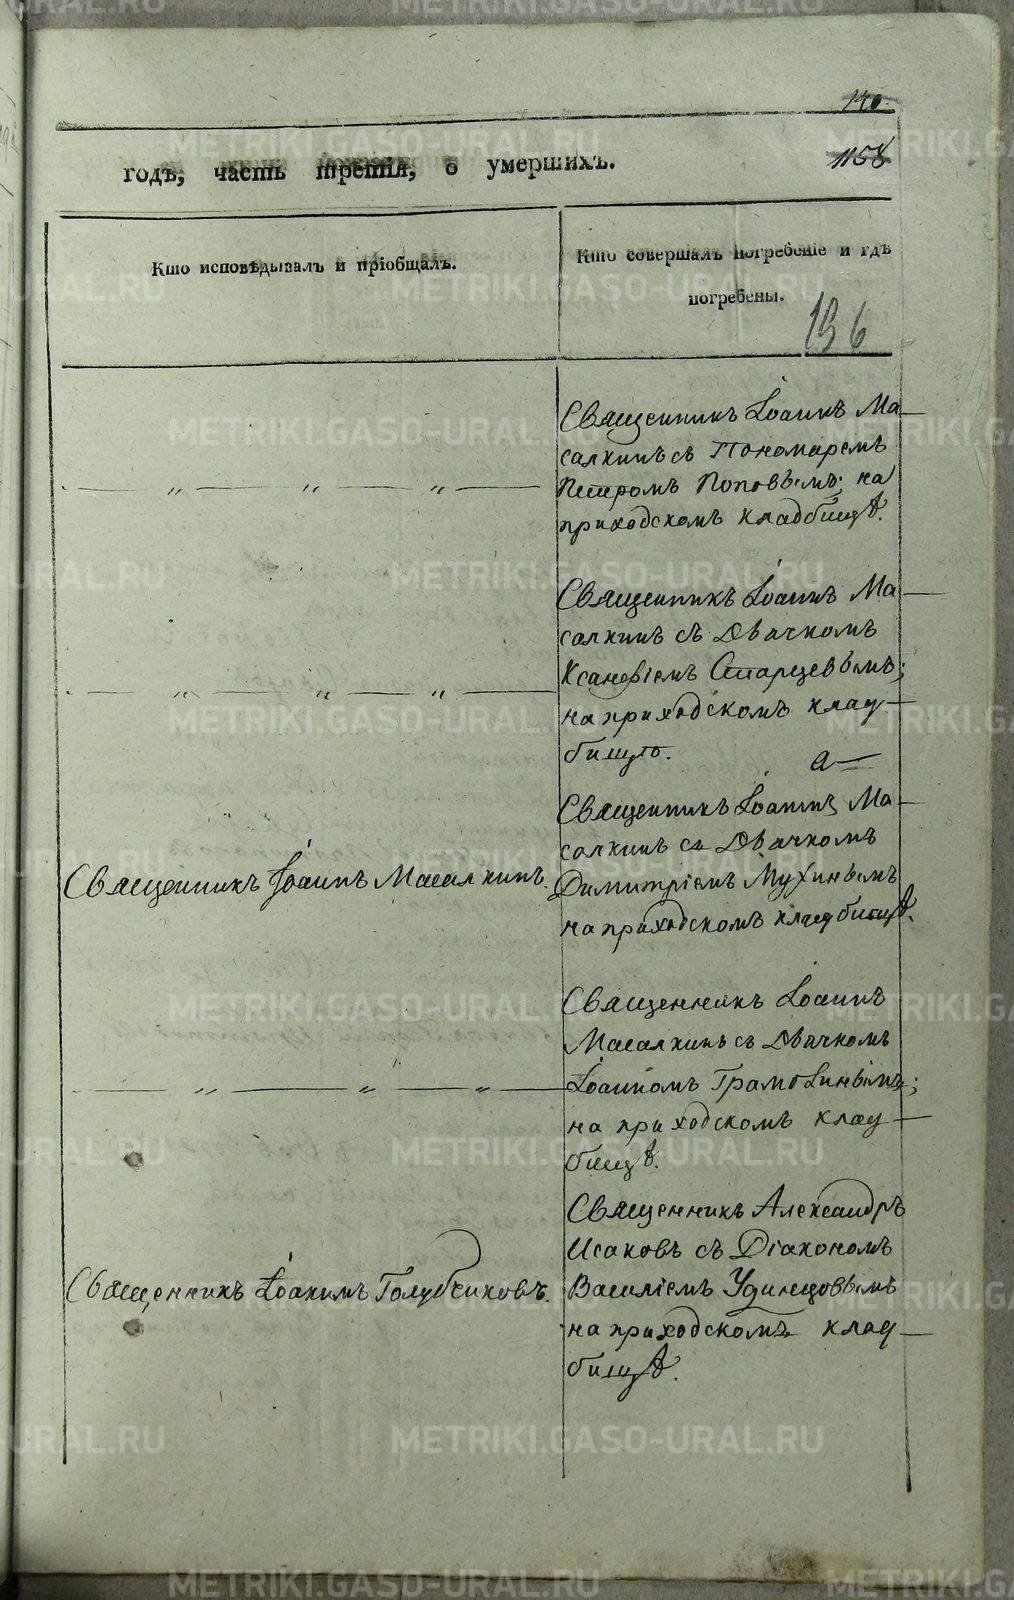 140.
годъ, часть третія, о умершихъ.
1158
Кто исповѣдывалъ и пріобщалъ.
Кто совершалъ погребеніе и гдѣ
погребены.
136
Священникъ Іоаннъ Ма-
салкинъ съ Пономаремъ
Петромъ Поповымъ; на
приходскомъ кладбищѣ.
— „ — „ — „ —
Священникъ Іоаннъ Ма-
салкинъ съ Дьячкомъ
Ксанѳіемъ Старцевымъ;
на приходскомъ клад-
бищѣ.
— „ — „ — „ —
а
Священникъ Іоаннъ Масалкинъ.
Священникъ Іоаннъ Ма-
салкинъ съ Дьячкомъ
Димитріемъ Мухинымъ
на приходскомъ кладбищѣ.
Священникъ Іоаннъ
Масалкинъ съ Дьячкомъ
— „ — „ — „ —
Іоанномъ Грамолинымъ;
на приходскомъ клад-
бищѣ.
Священникъ Іоакимъ Голубчиковъ.
Священникъ Александръ
Исаковъ съ Діакономъ
Василіемъ Удинцовымъ
на приходскомъ клад-
бищѣ.
METRIKI.GASO-URAL.RU